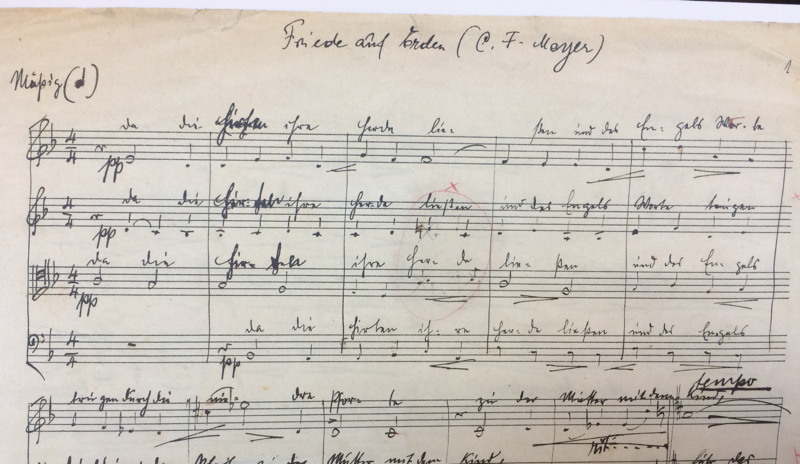 Friede auf Erden (C. F. Meyer)
1
Mäßig
4/4 pp da die Hirten ihre Herde lie- ßen und des En- gels Wor- te
4/4 pp da die Hir- ten ihre Her-de ließen und des Engels Worte trugen
4/4 pp da die Hir- ten ihre Her- de lie- ßen und des En- gels
4/4 pp da die Hirten ih- re Her-de ließen und des Engels
tempo
trugen durch die nie- dre Pfor- te zu der Mutter mit dem Kind,
rit.
zu der Mutter mit dem Kind,